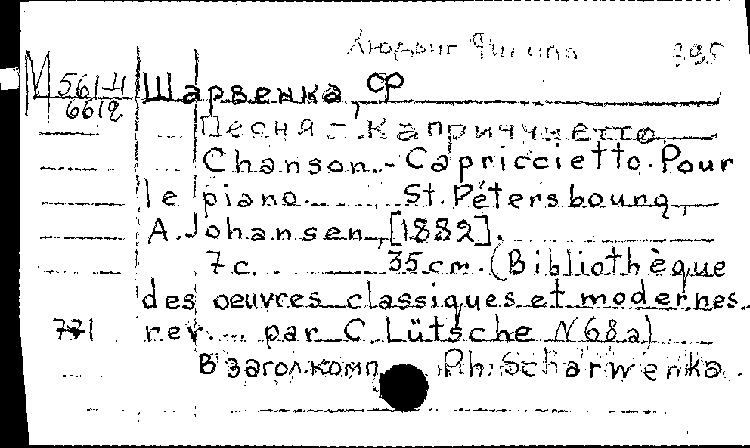 Людвиг Филипп 395
М 561-4 Шарвенка, Ф
66/2
Песня-Каприччиетто
Chanson-Capriccietto. Pour
le piano. St. Pétersbourg,
A. Johansen, [1882].
7 с. 35 см. (Bibliothèque
des oeuvres classiques et modernes
rev. par C. Lütsche N 68a)
771
В загол. комп. Ph. Scharwenka.